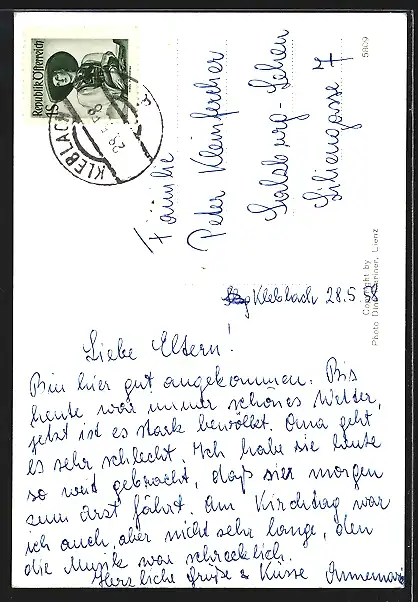 Republik Österreich
KLEBLACH
28.5.58
5809
Familie
Peter Kleinfercher
Salzburg-Lehen
Liliengasse 7
Copyright by
Lienz
Kleblach 28.5.58
Liebe Eltern.
Bin hier gut angekommen. Bis
heute war immer schönes Wetter,
jetzt ist es stark bewölkt. Oma geht
es sehr schlecht. Ich habe sie heute
so weit gebracht, daß sie morgen
zum Arzt fährt. Am Kirchtag war
ich auch, aber nicht sehr lange, den
die Musik war schrecklich.
Herzliche Grüße & Küsse Annemarie